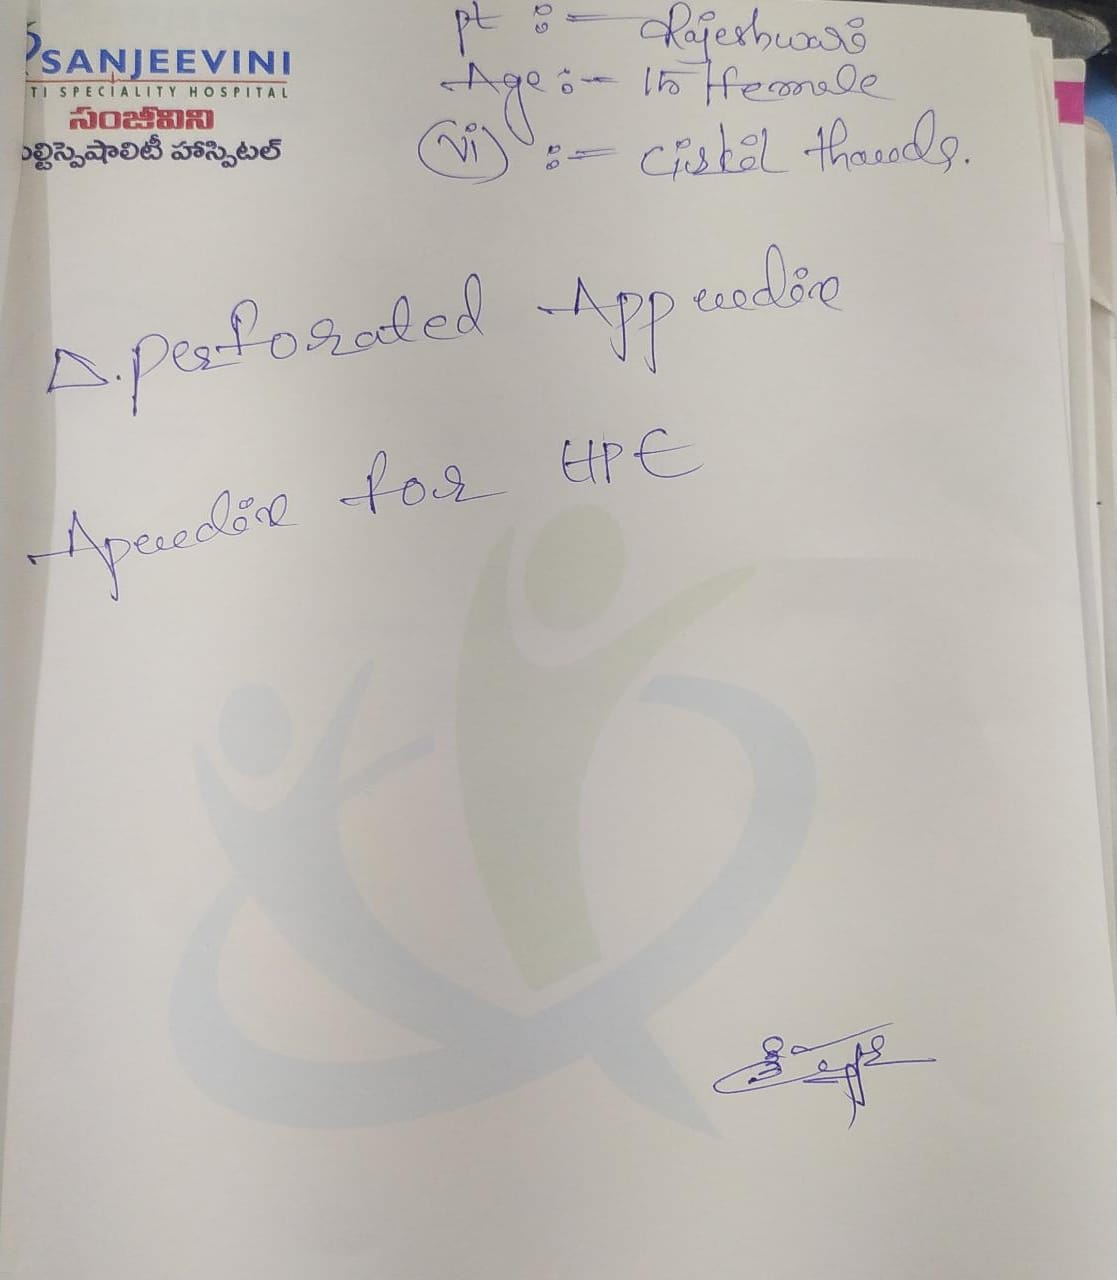 SANJEEVINI
TI SPECIALITY HOSPITAL
సంజీవిని
ల్టిస్పెషాలిటీ హాస్పిటల్
pt :- Rajeshwari
Age :- 15 / female
(Vi) :-
Δ. perforated Appendix
Apendix for HPE